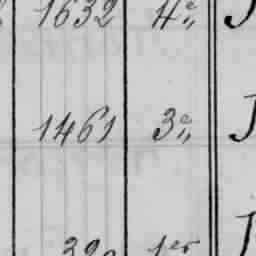 1632 4e
1461 3e J
1er